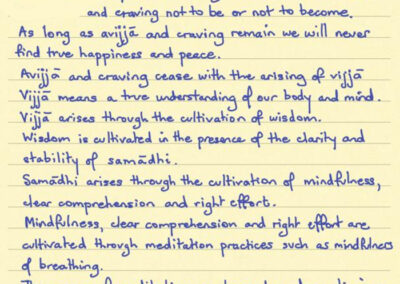 and craving not to be or not to become.
As long as avijjā and craving remain we will never
find true happiness and peace.
Avijjā and craving cease with the arising of vijjā
Vijjā means a true understanding of our body and mind.
Vijjā arises through the cultivation of wisdom.
Wisdom is cultivated in the presence of the clarity and
stability of samādhi.
Samādhi arises through the cultivation of mindfulness,
clear comprehension and right effort.
Mindfulness, clear comprehension and right effort are
cultivated through meditation practices such as mindfulness
of breathing.